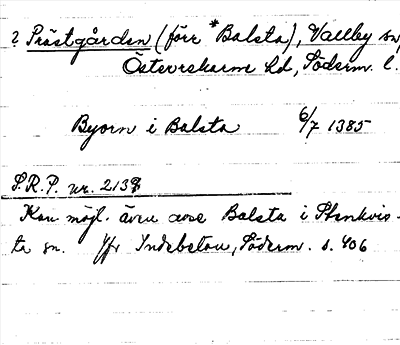 ? Prästgården (förr *Balsta), Vallby sn,
Österrekarne hd, Söderm. l.
Byorn i Balsta 6/7 1385
S.R.P. nr. 2138
Kan möjl. även avse Balsta i Stenkvis-
ta sn. Jfr Indebetou, Söderm. s. 406